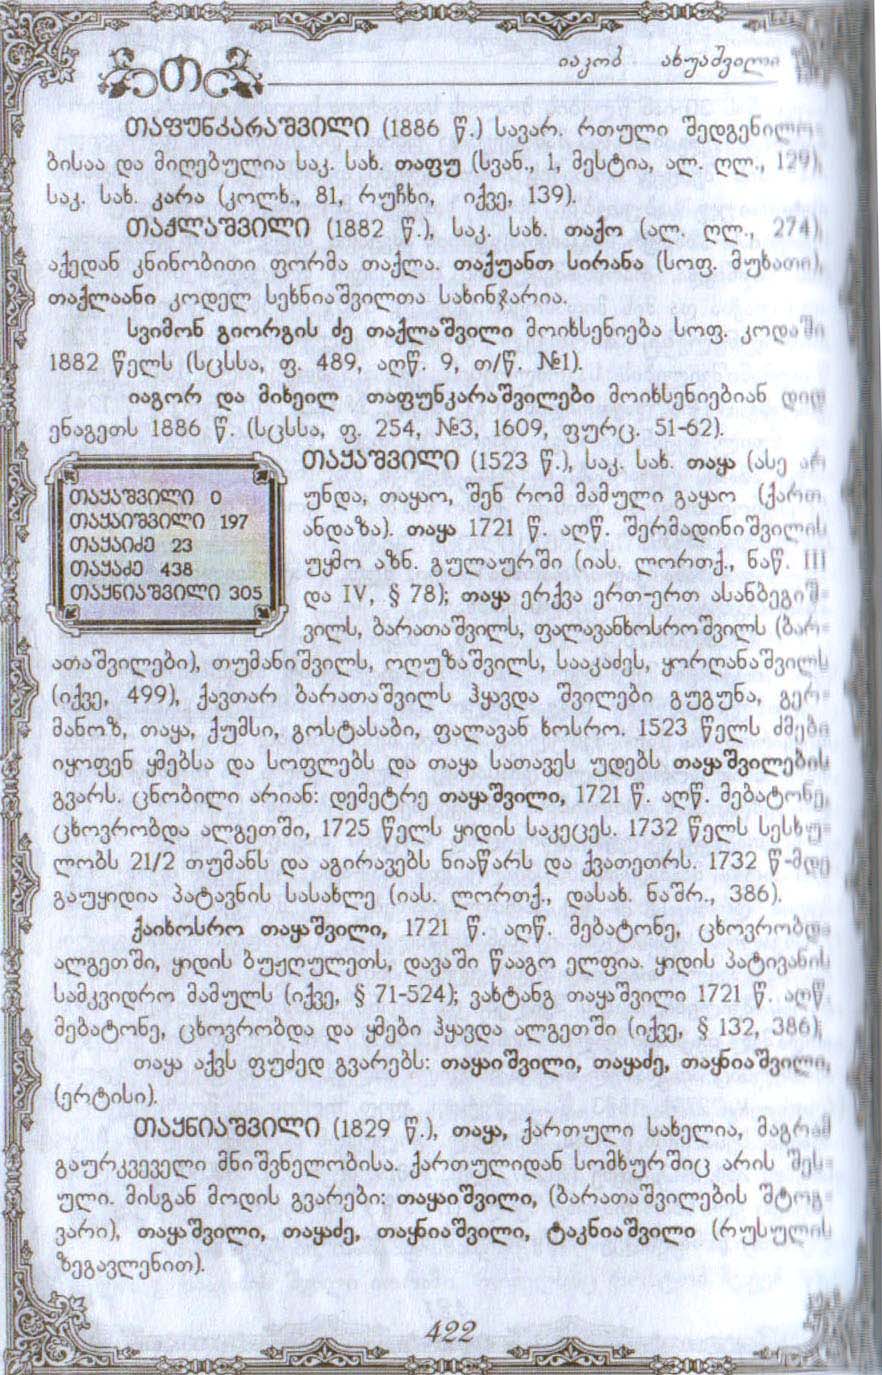 თ
იაკობ ახუაშვილი
თაფუნკარაშვილი (1886 წ.) სავარ. რთული შედგენილო-
ბისაა და მიღებულია საკ. სახ. თაფუ (სვან., 1, მესტია, ალ. ღლ., 129),
საკ. სახ. კარა (კოლხ., 81, რუჩხი, იქვე, 139).
თაქლაშვილი (1882 წ.), საკ. სახ. თაქო (ალ. ღლ., 274),
აქედან კნინობითი ფორმა თაქლა. თაქუანთ სირანა (სოფ. მუხათი),
თაქლაანი კოდელ სეხნიაშვილთა სახინჯარია.
სვიმონ გიორგის ძე თაქლაშვილი მოიხსენიება სოფ. კოდაში
1882 წელს (სცსსა, ფ. 489, აღწ. 9, თ/წ. №1).
იაგორ და მიხეილ თაფუნკარაშვილები მოიხსენიებიან დიდ
ენაგეთს 1886 წ. (სცსსა, ფ. 254, №3, 1609, ფურც. 51-62).
თაყაშვილი (1523 წ.), საკ. სახ. თაყა (ასე არ
უნდა, თაყაო, შენ რომ მამული გაყაო (ქართ.
ანდაზა). თაყა 1721 წ. აღწ. შერმადინიშვილის
უყმო აზნ. გულაურში (იას. ლორთქ., ნაწ. III
და IV, § 78); თაყა ერქვა ერთ-ერთ ასანბეგიშ-
ვილს, ბარათაშვილს, ფალავანხოსროშვილს (ბარ-
თაყაშვილი 0
თაყაიშვილი 197
თაყაიძე 23
თაყაძე 438
თაყნიაშვილი 305
ათაშვილები), თუმანიშვილს, ოღუზაშვილს, სააკაძეს, ყორღანაშვილს
(იქვე, 499), ქავთარ ბარათაშვილს ჰყავდა შვილები გუგუნა, გერ-
მანოზ, თაყა, ქუმსი, გოსტასაბი, ფალავან ხოსრო. 1523 წელს ძმები
იყოფენ ყმებსა და სოფლებს და თაყა სათავეს უდებს თაყაშვილების
გვარს. ცნობილი არიან: დემეტრე თაყაშვილი, 1721 წ. აღწ. მებატონე,
ცხოვრობდა ალგეთში, 1725 წელს ყიდის საკეცეს. 1732 წელს სესხუ-
ლობს 21/2 თუმანს და აგირავებს ნიაწარს და ქვათეთრს. 1732 წ-მდე
გაუყიდია პატავნის სასახლე (იას. ლორთქ., დასახ. ნაშრ., 386).
ქაიხოსრო თაყაშვილი, 1721 წ. აღწ. მებატონე, ცხოვრობდა
ალგეთში, ყიდის ბუჟღულეთს, დავაში წააგო ელფია. ყიდის პატივანის
სამკვიდრო მამულს (იქვე, § 71-524); ვახტანგ თაყაშვილი 1721 წ. აღწ.
მებატონე, ცხოვრობდა და ყმები ჰყავდა ალგეთში (იქვე, § 132, 386);
თაყა აქვს ფუძედ გვარებს: თაყაიშვილი, თაყაძე, თაყნიაშვილი,
(ერტისი).
თაყნიაშვილი (1829 წ.), თაყა, ქართული სახელია, მაგრამ
გაურკვეველი მნიშვნელობისა. ქართულიდან სომხურშიც არის შეს-
ული. მისგან მოდის გვარები: თაყაიშვილი, (ბარათაშვილების შტოგ-
ვარი), თაყაშვილი, თაყაძე, თაყნიაშვილი, ტაკნიაშვილი (რუსულის
ზეგავლენით).
422